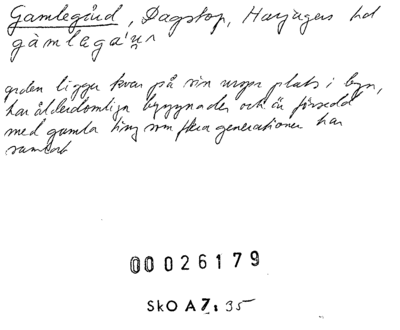 Gamlegård, Dagstorp, Harjagers hd
gàmlega'ṇ^
gården ligger kvar på sin urspr plats i byn,
har ålderdomliga byggnader och är försedd
med gamla ting som flera generationer har
samlat
00026179
SkO A7:35